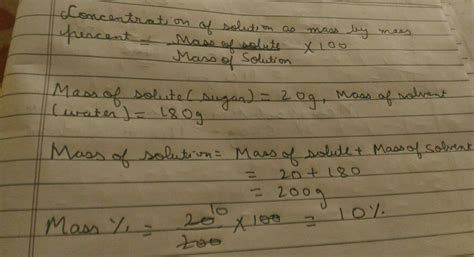 Concentration of solution as mass by mass
percent = Mass of solute / Mass of Solution × 100
Mass of solute (sugar) = 20g, Mass of solvent
(water) = 180g
Mass of solution = Mass of solute + Mass of Solvent
= 20 + 180
= 200g
Mass % = 20 10 / 200 × 100 = 10%